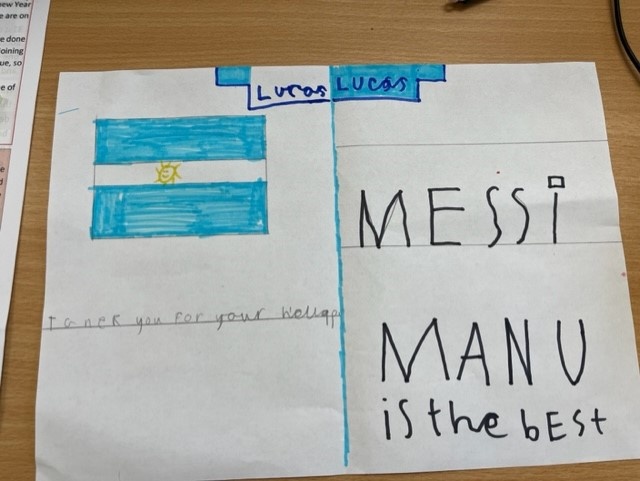 new Year
e are on
e done
joining
ue, so
e of
Lucas Lucas
MESSi
Tanck you For your
MANU
is the bEst